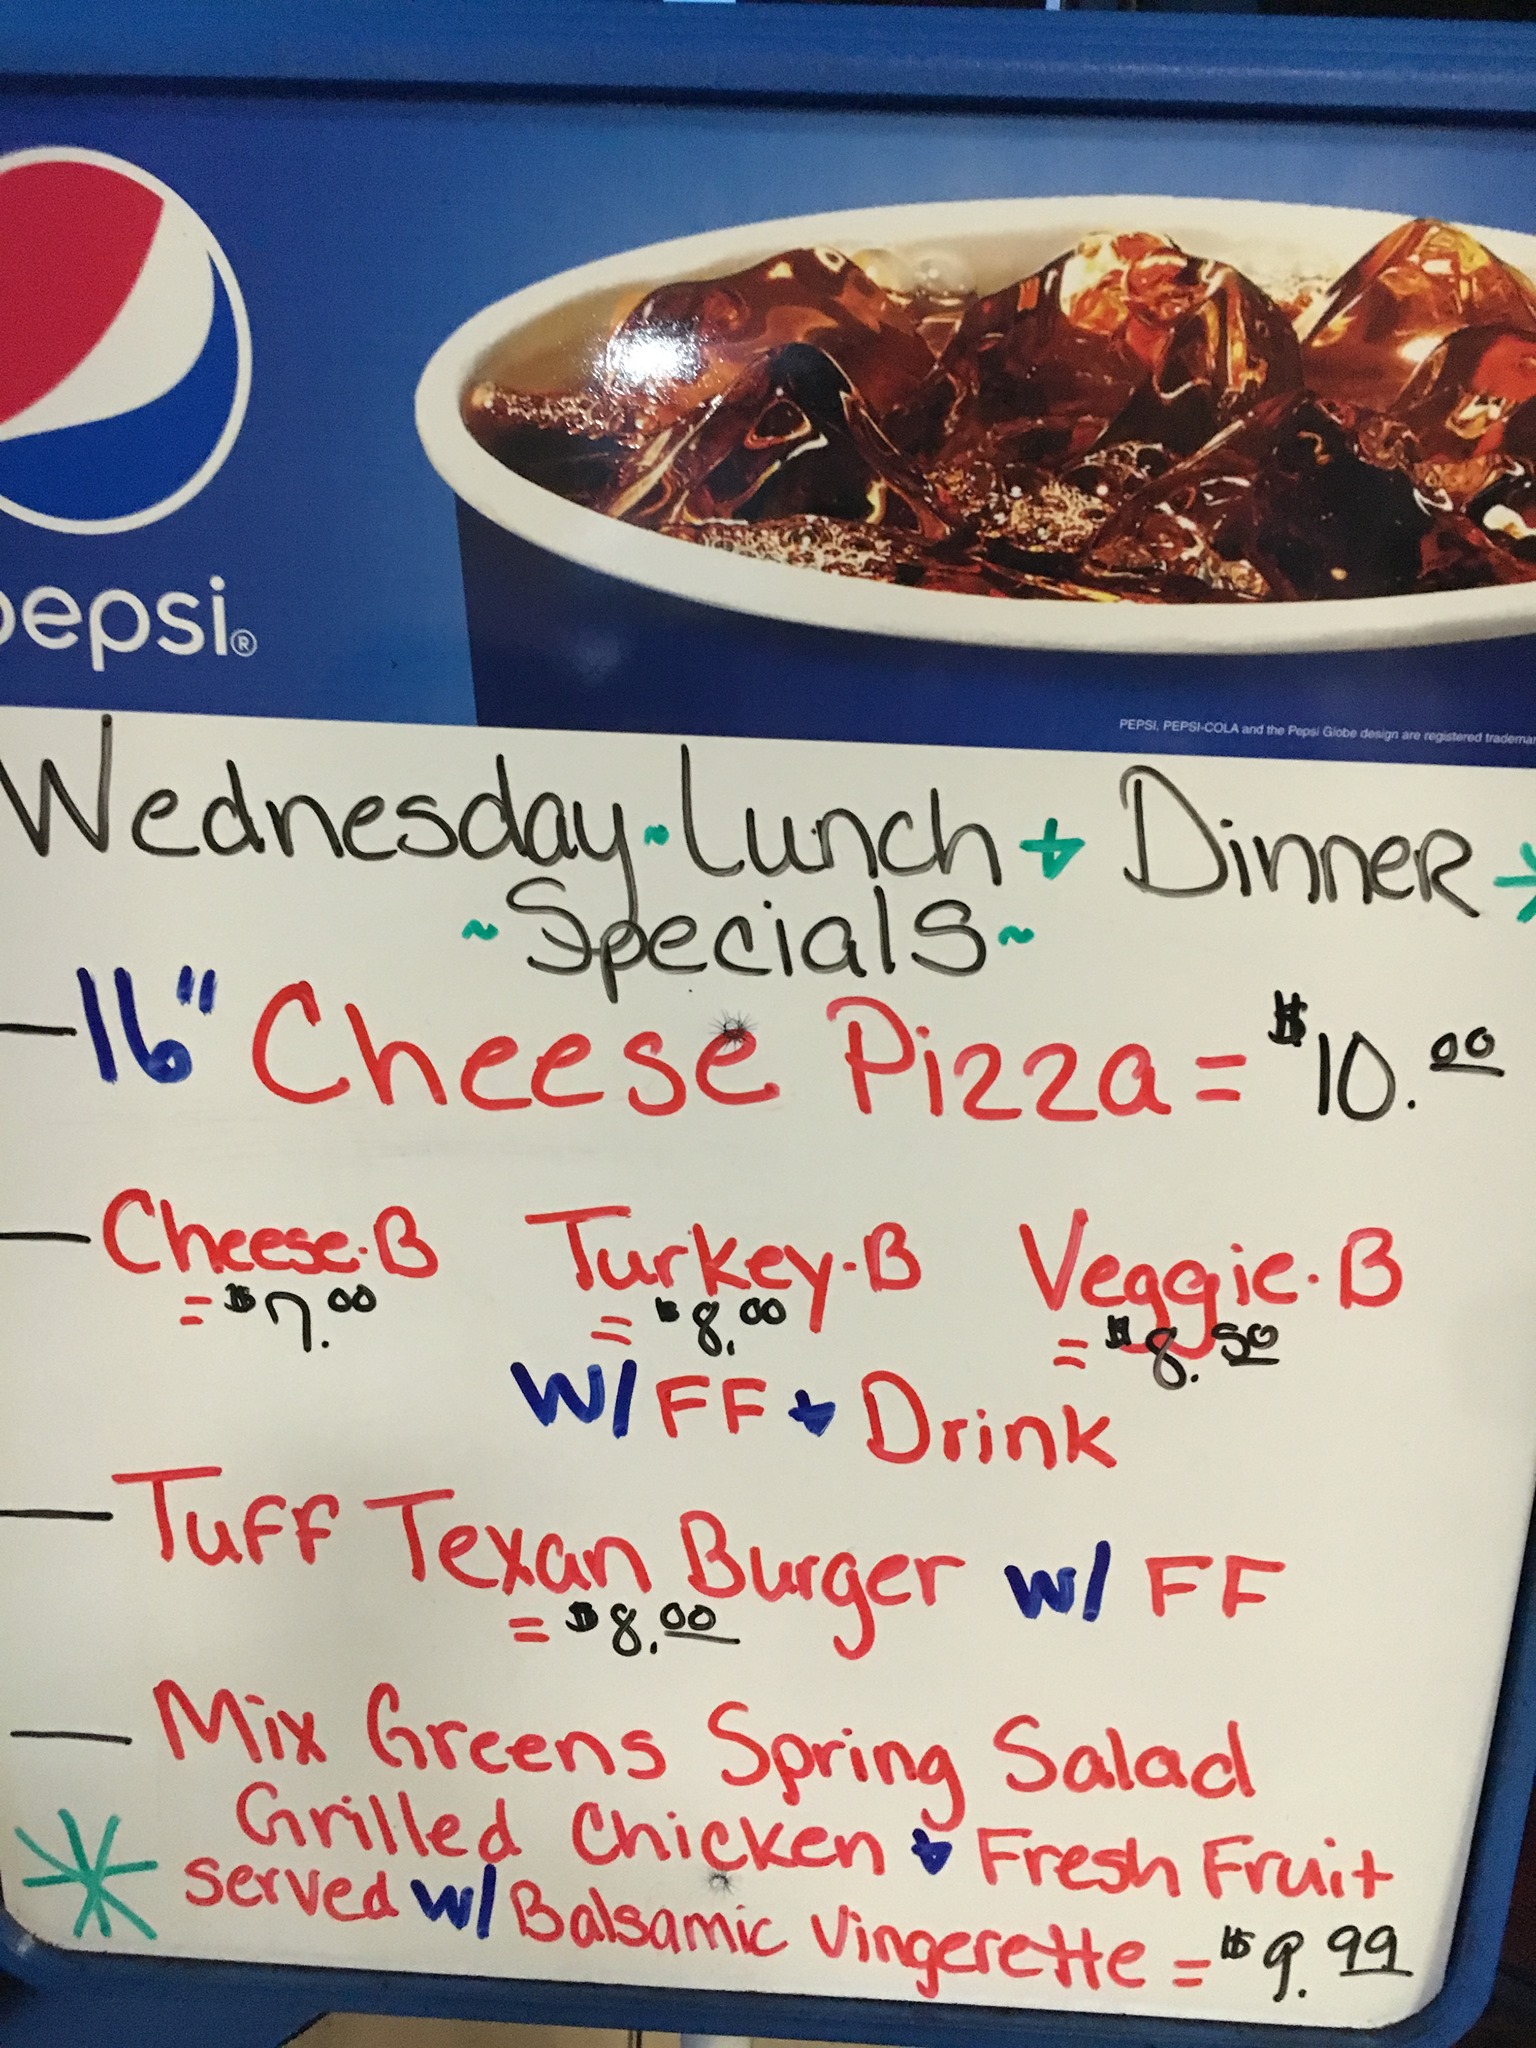 pepsi®
PEPSI, PEPSI-COLA and the Pepsi Globe design are registered
Wednesday ~ Lunch + Dinner
~ Specials ~
— 16" Cheese Pizza = $10.00
— Cheese-B Turkey-B Veggie-B
= $7.00 = $8.00 = $8.50
W/ FF + Drink
— Tuff Texan Burger w/ FF
= $8.00
— Mix Greens Spring Salad
Grilled Chicken + Fresh Fruit
served w/ Balsamic Vingerette = $9.99